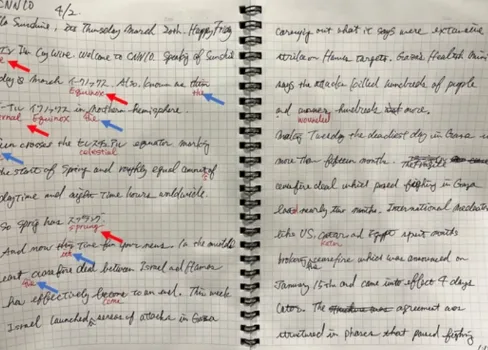 CNN10 4/2
Sunshine, its Thursday March 20th. Happy Friday
I'm Coy Wire. Welcome to CNN10. Speaking of Sunshine
day is March イクイノクス. Also, known as them
Equinox the
イクイノクス in northern hemisphere
Equinox the
crosses the equator marking
celestial
the start of Spring and roughly equal amount of
daytime and night time hours worldwide.
So Spring has スプラング
sprung
And now this time for your news. In the middle
east ceasefire deal between Israel and Hamas
the
has effectively become to an end. This week
come
Israel launched series of attacks in Gaza
carrying out what it says were extensive
strikes on Hamas targets. Gaza's Health Mini
says the attacks killed hundreds of people
and hundreds more.
wounded
Tuesday the deadliest day in Gaza in
more than fifteen months. The
ceasefire deal which paused fighting in Gaza
nearly two months. International mediators
like US, and Egypt spent months
brokering ceasefire which was announced on
January 15th and came into effect 4 days
later. The agreement was
structured in phases that paused fighting